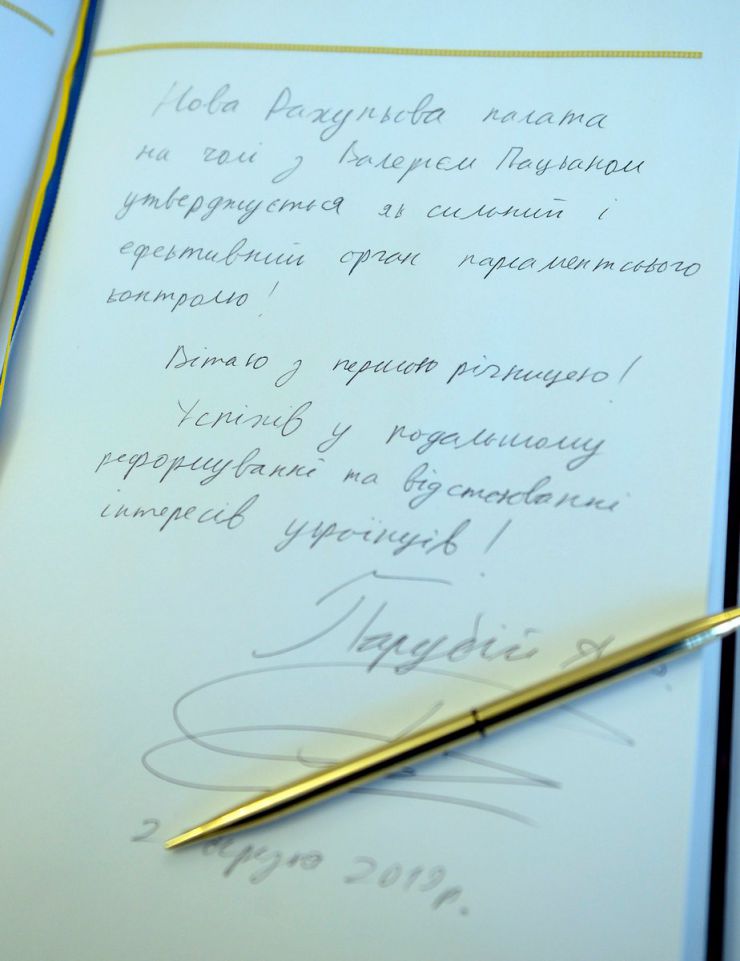 Нова Рахункова палата
на чолі з Валерієм Пацканом
утверджується як сильний і
ефективний орган парламентського
контролю!
Вітаю з першою річницею!
Успіхів у подальшому
реформуванні та відстоюванні
інтересів українців!
Парубій А.
2019 р.